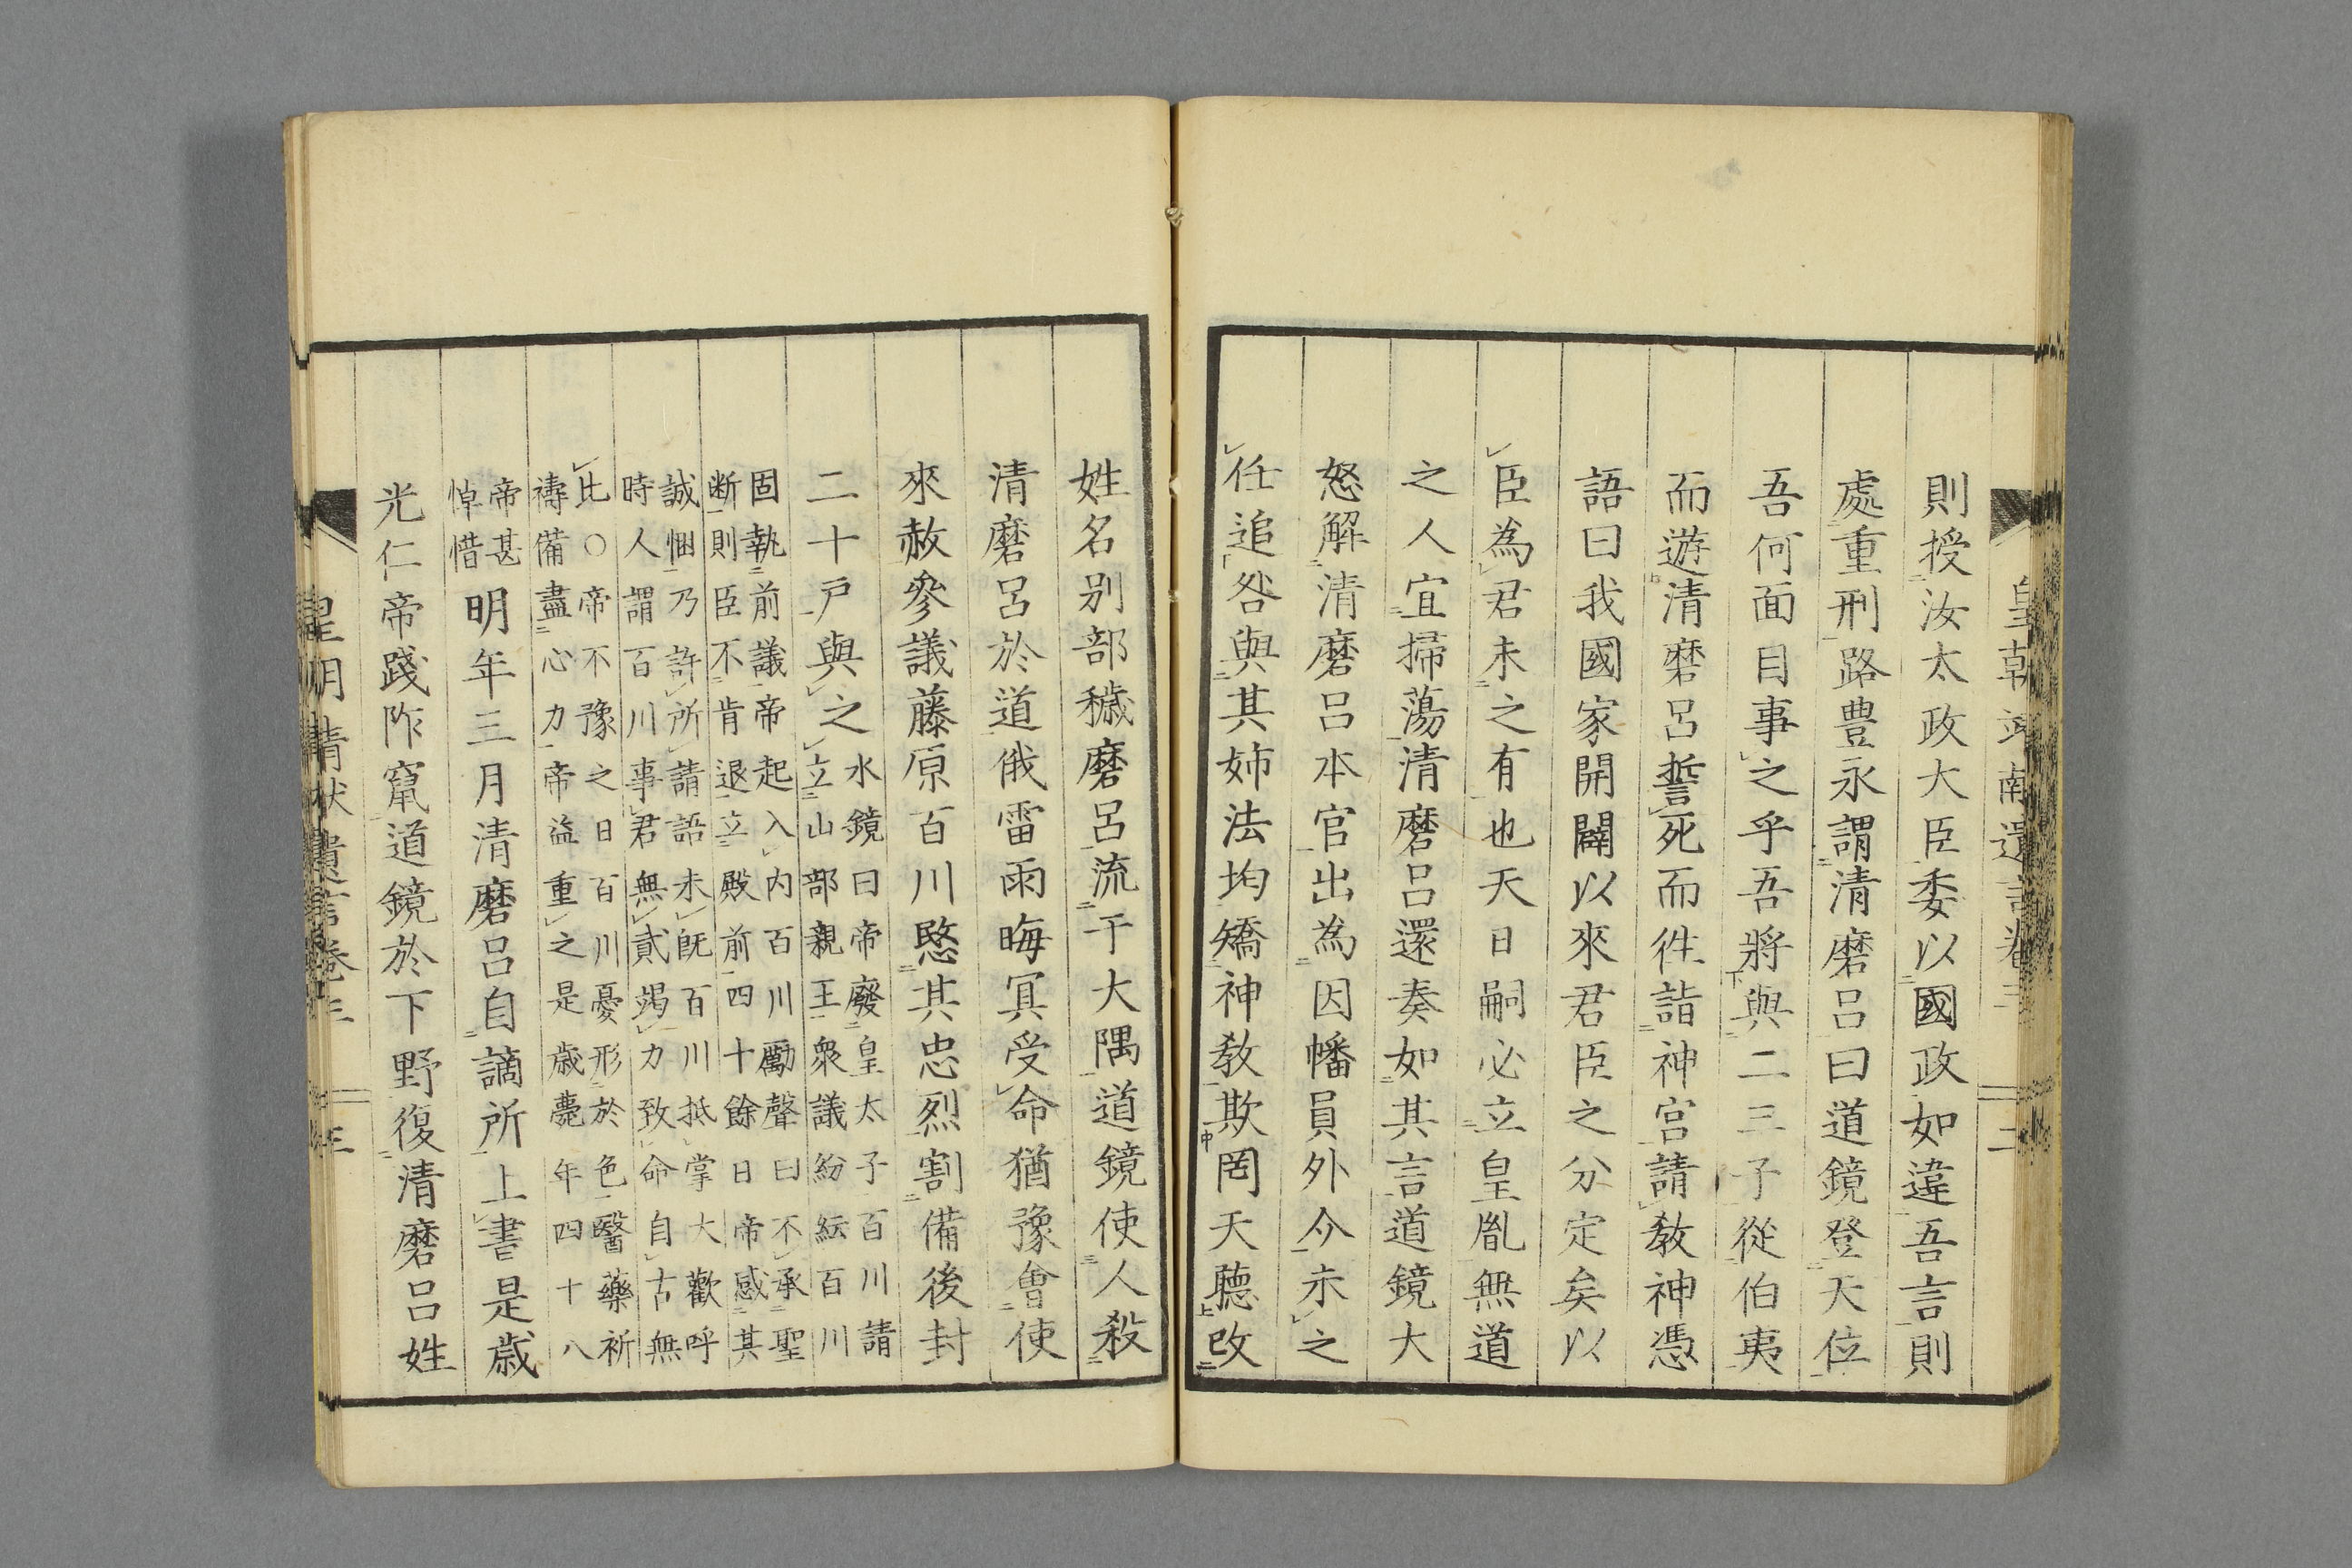 則授汝太政大臣委以國政如違吾言則
處重刑路豊永謂清磨呂曰道鏡登天位
吾何面目事之乎吾將與二三子從伯夷
而遊清磨呂誓死而往詣神宮請敎神憑
語曰我國家開闢以來君臣之分定矣以
臣為君未之有也天日嗣必立皇胤無道
之人宜掃蕩清磨呂還奏如其言道鏡大
怒解清磨呂本官出為因幡員外介未之
任追咎與其姉法均矯神敎欺罔天聽改
姓名別部穢磨呂流于大隅道鏡使人殺
清磨呂於道俄雷雨晦冥受命猶豫會使
來赦參議藤原百川愍其忠烈割備後封
二十戸與之
水鏡曰帝廢皇太子百川請
立山部親王衆議紛紜百川
固執前議帝起入內百川勵聲曰不承聖
断則臣不肯退立殿前四十餘日帝感其
誠悃乃許所請語未既百川抵掌大歡呼
時人謂百川事君無貳竭力致命自古無
比○帝不豫之日百川憂形於色醫藥祈
禱備盡心力帝益重之是歳薨年四十八
帝甚
悼惜
明年三月清磨呂自謫所上書是歳
光仁帝踐阼竄道鏡於下野復清磨呂姓